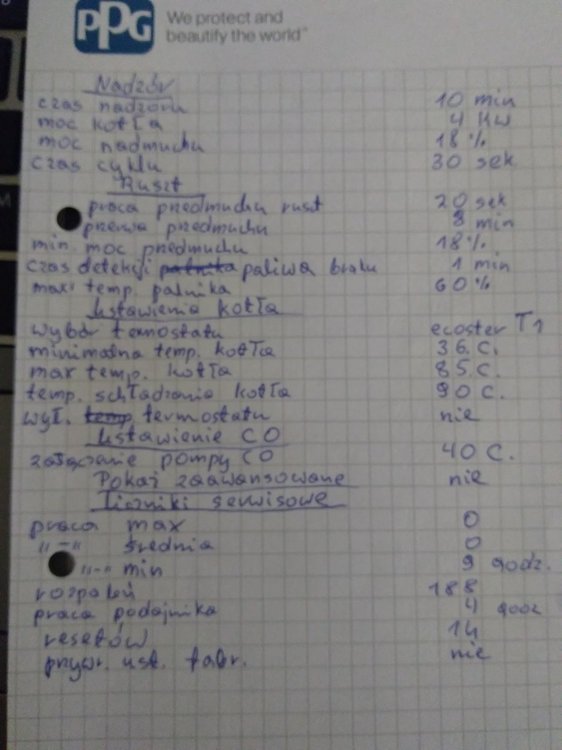 PPG We protect and
beautify the world™
Nadzór
czas nadzoru 10 min
moc kotła 4 KW
moc nadmuchu 18%
czas cyklu 30 sek
Ruszt
praca przedmuchu ruszt 20 sek
przerwa przedmuchu 8 min
min. moc przedmuchu 18%
czas detekcji palnika paliwa braku 1 min
max temp. palnika 60%
Ustawienia kotła
wybór termostatu ecoster T1
minimalna temp. kotła 36. C.
max temp. kotła 85. C.
temp. schładzania kotła 90 C.
wył. temp termostatu nie
Ustawienie CO
załączenie pompy CO 40 C.
Pokaż zaawansowane nie
Liczniki serwisowe
praca max 0
"-" średnia 0
"-" min 9 godz.
rozpaleń 188
praca podajnika 4 godz
resetów 14
przywr. ust. fabr. nie